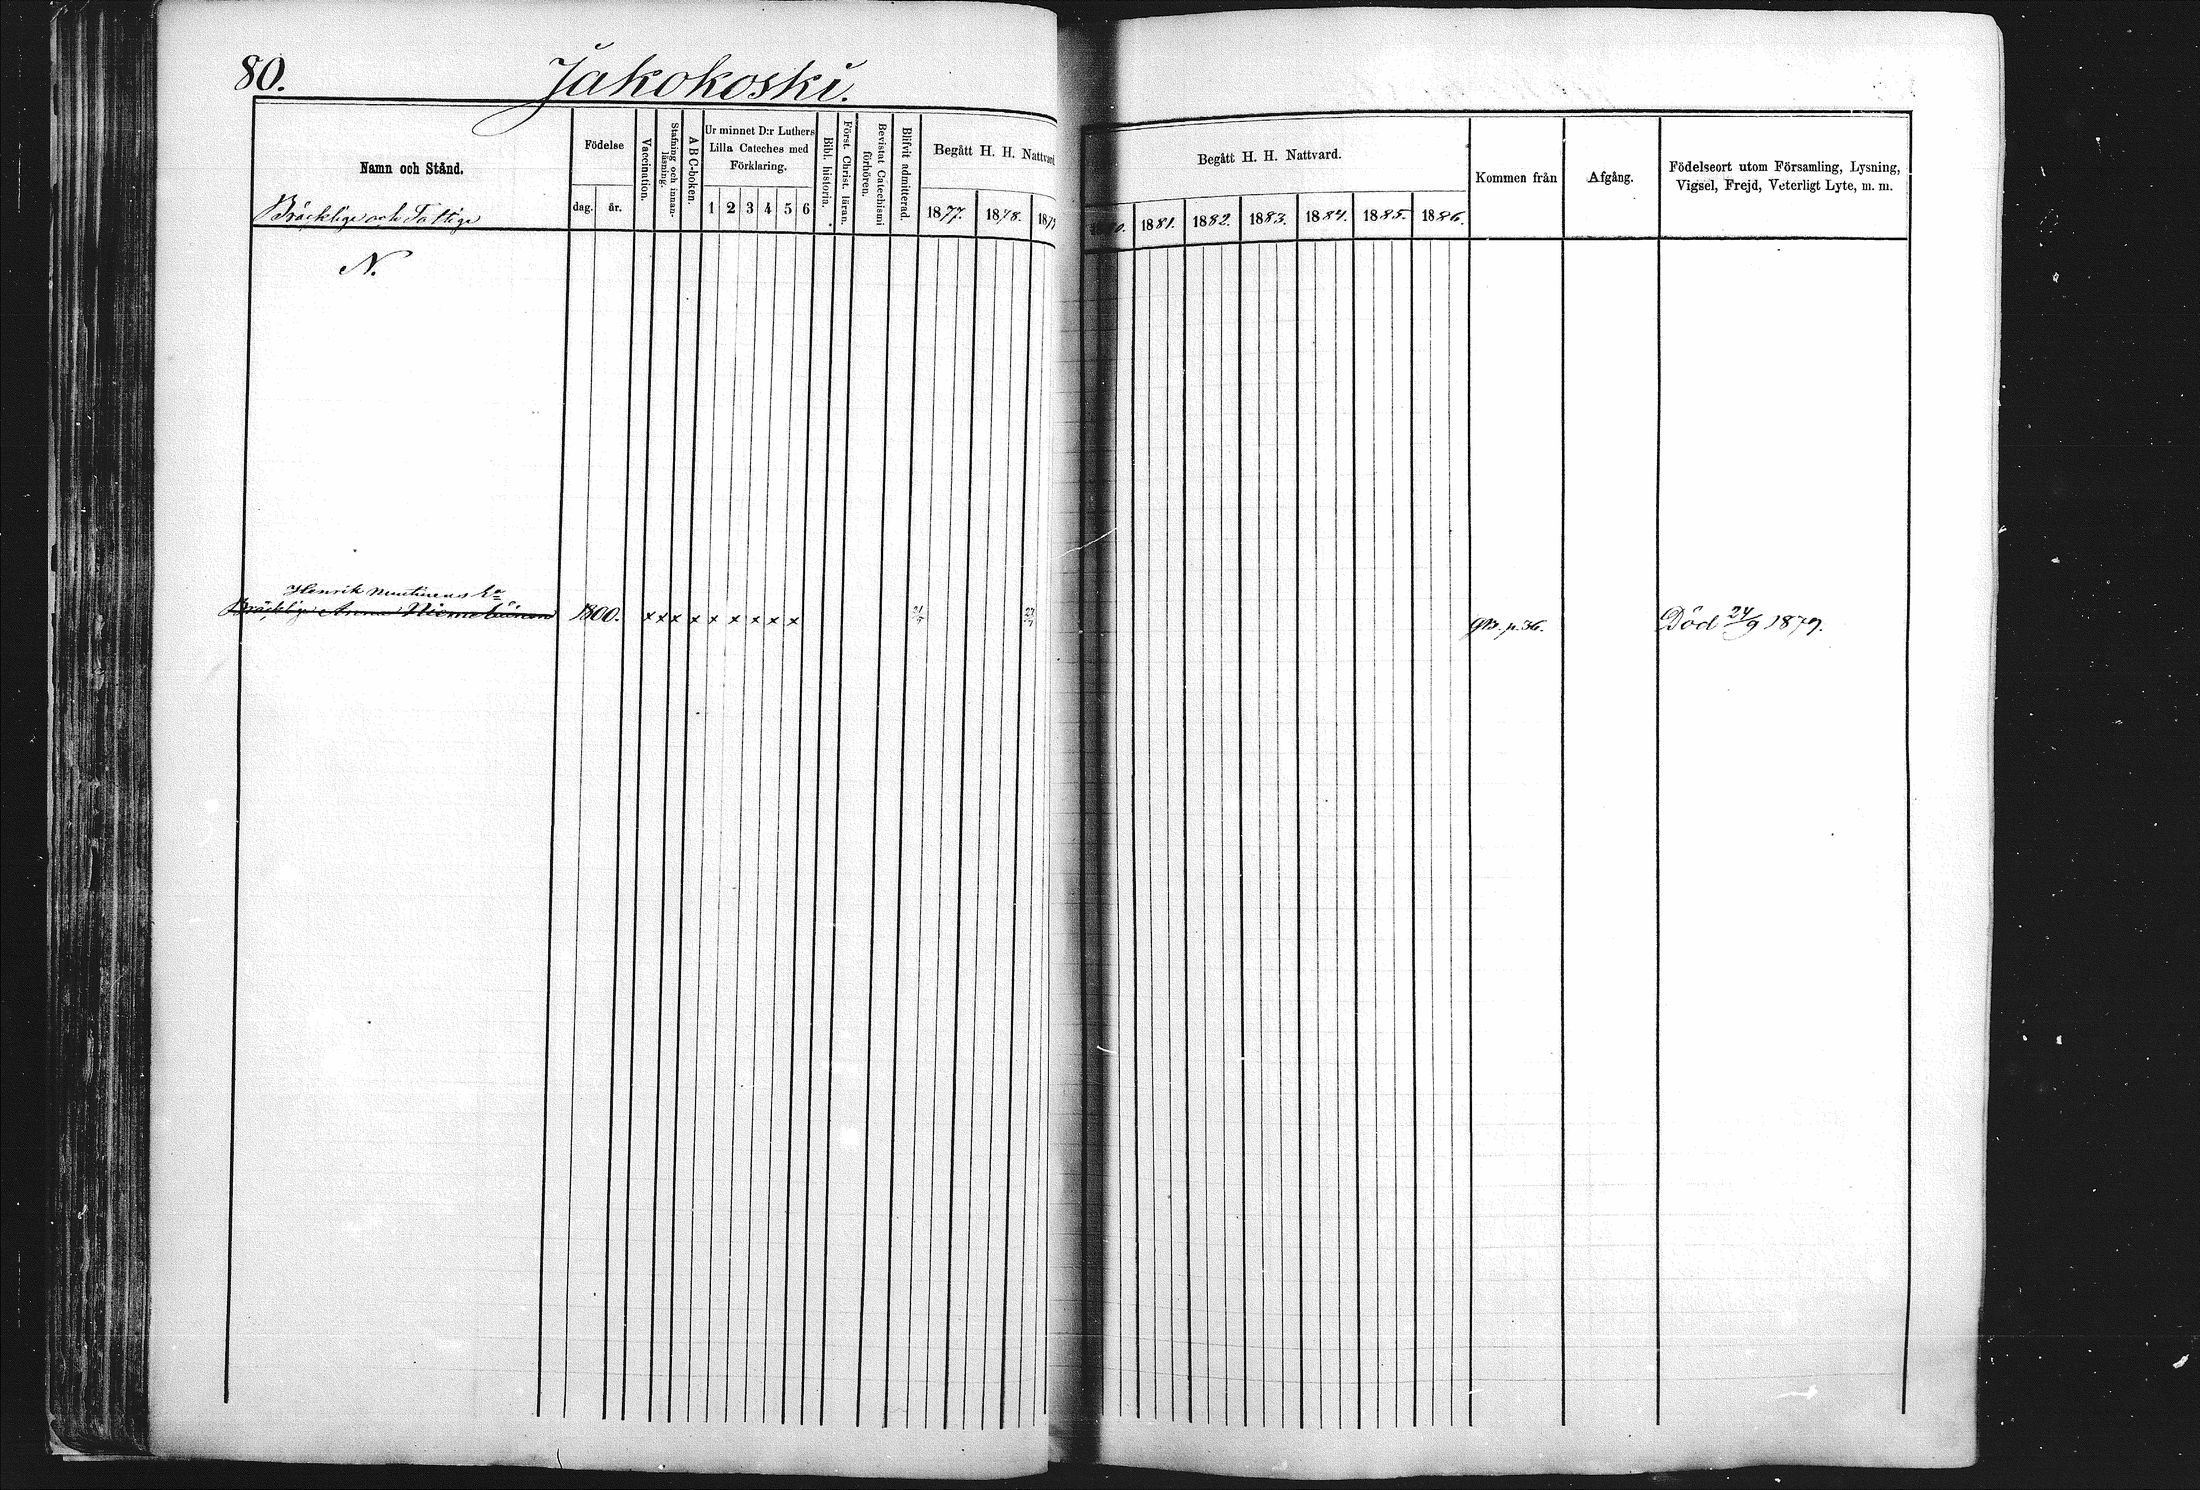 80.
Jakokoski.
Namn och Stånd.
Bräcklige och Fattige
Födelse
dag. år.
Vaccination.
Stafning och innan-
läsning.
ABC-boken.
Ur minnet D:r Luthers
Lilla Cateches med
Förklaring.
1 2 3 4 5 6
Bibl. historia.
Först. Christ. läran.
Bevistat Catechismi
förhören.
Blifvit admitterad.
Begått H. H. Nattvard
1877. 1878. 187
Begått H. H. Nattvard.
1881. 1882. 1883. 1884. 1885. 1886.
Kommen från
Afgång.
Födelseort utom Församling, Lysning,
Vigsel, Frejd, Veterligt Lyte, m. m.
N.
Henrik
Bräcklige Anna
1800. x x x x x x x x x
p. 36.
Död 24/9 1879.